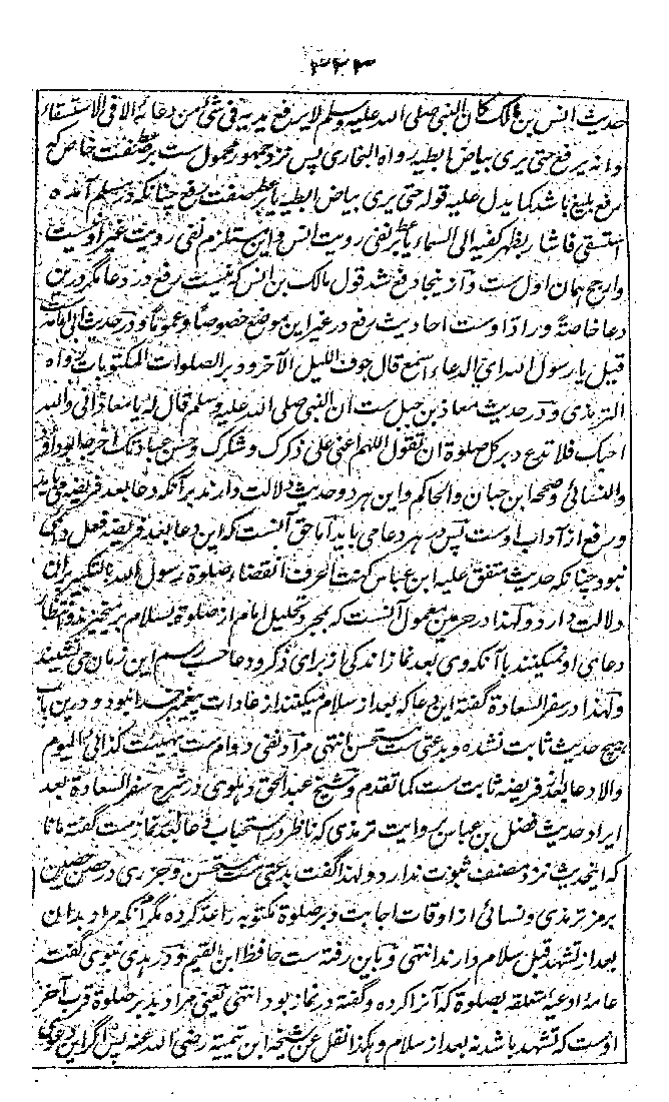 ۳۲۳
حدیث انس بن مالک کان النبی صلی الله علیه وسلم لا یرفع یدیه فی شئ من دعائه الا فی الاستسقاء
وانه یرفع حتی یری بیاض ابطیه رواه البخاری پس نزد جمهور محمول ست بر صفت خاص که
رفع بلیغ باشد کما یدل علیه قوله حتی یری بیاض ابطیه یا بر صفت رفع چنانکه در مسلم آمده
استسقی فاشار بظهر کفیه الی السماء یا بر نفی رویت انس و این مستلزم نفی رویت غیر او نیست
وارجح همان اول ست و از ینجا دفع شد قول مالک بن انس که نیست رفع در دعا مگر درین
دعا خاصةً و راد اوست احادیث رفع در غیر این موضع خصوصاً و عموماً و در حدیث ابی امامه
قیل یا رسول الله ای الدعاء اسمع قال جوف اللیل الآخر و دبر الصلوات المکتوبات رواه
الترمذی و در حدیث معاذ بن جبل ست ان النبی صلی الله علیه وسلم قال له یا معاذ انی والله
احبک فلا تدع دبر کل صلوة ان تقول اللهم اعنی علی ذکرک و شکرک و حسن عبادتک اخرجه ابو داؤد
والنسائی و صححه ابن حبان والحاکم و این هر دو حدیث دلالت دارند بر آنکه دعا بعد فریضه می باید
و رفع از آداب اوست پس در هر دعا می باید اما حق آنست که این دعا بعد فریضه فعل دائمی
نبود چنانکه حدیث متفق علیه ابن عباس کنت اعرف انقضاء صلوة رسول الله بالتکبیر بران
دلالت دارد و لهذا در حرمین معمول آنست که بمجرد تحلیل امام از صلوة بسلام برمیخیزند و انتظار
دعای او نمیکنند با آنکه وی بعد نماز اندکی از برای ذکر و دعا حسب رسم این زمان می نشیند
و لهذا در سفر السعادة گفته این دعا که بعد از سلام میکنند از عادات پیغمبر خدا نبود و درین باب
هیچ حدیث ثابت نشده و بدعتی ست مستحسن انتهی مراد نفی دوام ست بهیئت کذائی الیوم
والا دعا بعد فریضه ثابت ست کما تقدم و شیخ عبد الحق دهلوی در شرح سفر السعادة بعد
ایراد حدیث فضل بن عباس بروایت ترمذی که ناظر در استحباب دعا بعد نماز ست گفته مانا
که اینحدیث نزد مصنف ثبوت ندارد و لهذا گفت بدعتی ست مستحسن و جزری در حصن حصین
برمز ترمذی و نسائی از اوقات اجابت دبر صلوة مکتوبه را عد کرده مگر آنکه مراد بدان
بعد از تشهد قبل سلام دارند انتهی و باین رفته ست حافظ ابن القیم و در هدی نبوی گفت
عامه ادعیه متعلقه بصلوة که آنرا کرده و گفته در نماز بود انتهی یعنی مراد بدبر صلوة قرب آخر
اوست که تشهد باشد نه بعد از سلام و هکذا نقل عن شیخه ابن تیمیة رضی الله عنه پس اگر این دعوی